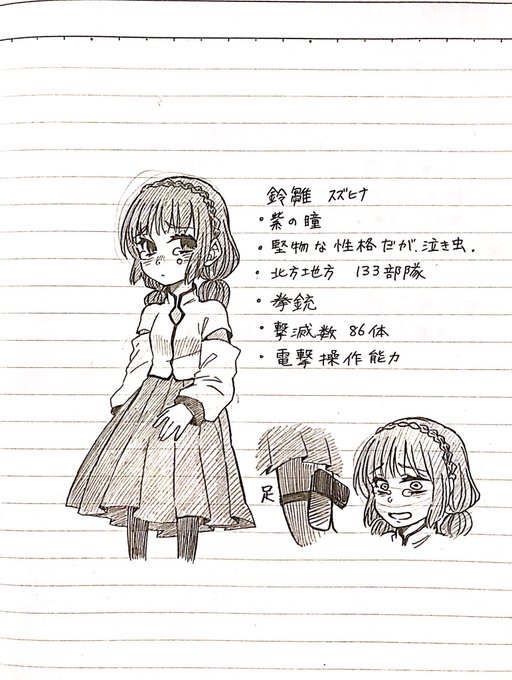 鈴雛 スズヒナ
・紫の瞳
・堅物な性格だが、泣き虫.
・北方地方 133部隊
・拳銃
・撃滅数 86体
・電撃操作能力
足